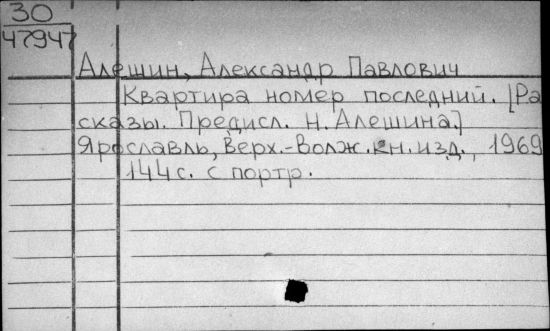 30
47947
Алешин, Александр Павлович
Квартира номер последний. [Ра
сказы. Предисл. Н. Алешина.]
Ярославль, Верх.-Волж. кн. изд., 1969
144 с. с портр.